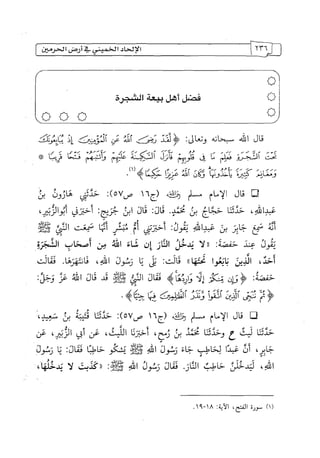 ٢٣٦
الإلحاد الخميني في أرض الحرمين
فضل أهل بيعة الشجرة
قال الله سبحانه وتعالى: ﴿لَّقَدْ رَضِيَ اللَّهُ عَنِ الْمُؤْمِنِينَ إِذْ يُبَايِعُونَكَ
تَحْتَ الشَّجَرَةِ فَعَلِمَ مَا فِي قُلُوبِهِمْ فَأَنزَلَ السَّكِينَةَ عَلَيْهِمْ وَأَثَابَهُمْ فَتْحًا قَرِيبًا *
وَمَغَانِمَ كَثِيرَةً يَأْخُذُونَهَا وَكَانَ اللَّهُ عَزِيزًا حَكِيمًا﴾(١).
❏ قال الإمام مسلم رحمه الله (ج١٦ ص٥٧): حَدَّثَنِي هَارُونُ بْنُ
عَبْدِاللهِ، حَدَّثَنَا حَجَّاجُ بْنُ مُحَمَّدٍ، قال: قال ابْنُ جُرَيْجٍ: أخبرني أبوالزُّبَيْرِ،
أنَّهُ سَمِعَ جَابِرَ بنَ عَبْدِاللهِ يَقُولُ: أخبرتني أُمُّ مُبَشِّرٍ أنَّها سَمِعَت النبيَّ ﷺ
يَقُولُ عِنْدَ حَفْصَةَ: «لا يَدخُلُ النَّارَ إن شَاءَ اللهُ مِن أصحَابِ الشَّجَرَةِ
أحَدٌ، الَّذِينَ بَايَعُوا تَحْتَها» قالت: بَلَى يَا رَسُولَ اللهِ، فَانتَهَرَها. فَقالَت
حَفصَةُ: ﴿وَإِن مِّنكُمْ إِلَّا وَارِدُهَا﴾ فَقالَ النبيُّ ﷺ قَد قَالَ اللهُ عَزَّ وَجَلَّ:
﴿ثُمَّ نُنَجِّي الَّذِينَ اتَّقَوا وَّنَذَرُ الظَّالِمِينَ فِيهَا جِثِيًّا﴾.
❏ قال الإمام مسلم رحمه الله (ج١٦ ص٥٧): حَدَّثَنَا قُتَيْبَةُ بْنُ سَعِيدٍ،
حَدَّثَنَا لَيثٌ ح وحَدَّثَنَا مُحَمَّدُ بنُ رُمحٍ، أخبَرَنَا اللَّيثُ، عَن أبي الزُّبَيْرِ، عَن
جَابِرٍ، أنَّ عَبدًا لِحَاطِبٍ جَاءَ رَسُولَ اللهِ ﷺ يَشكُو حَاطِبًا فَقَالَ: يَا رَسُولَ
اللهِ، لَيَدخُلَنَّ حَاطِبٌ النَّارَ. فَقَالَ رَسُولُ اللهِ ﷺ: «كَذَبتَ لا يَدخُلُها،
(١) سورة الفتح، الآية: ١٨-١٩.